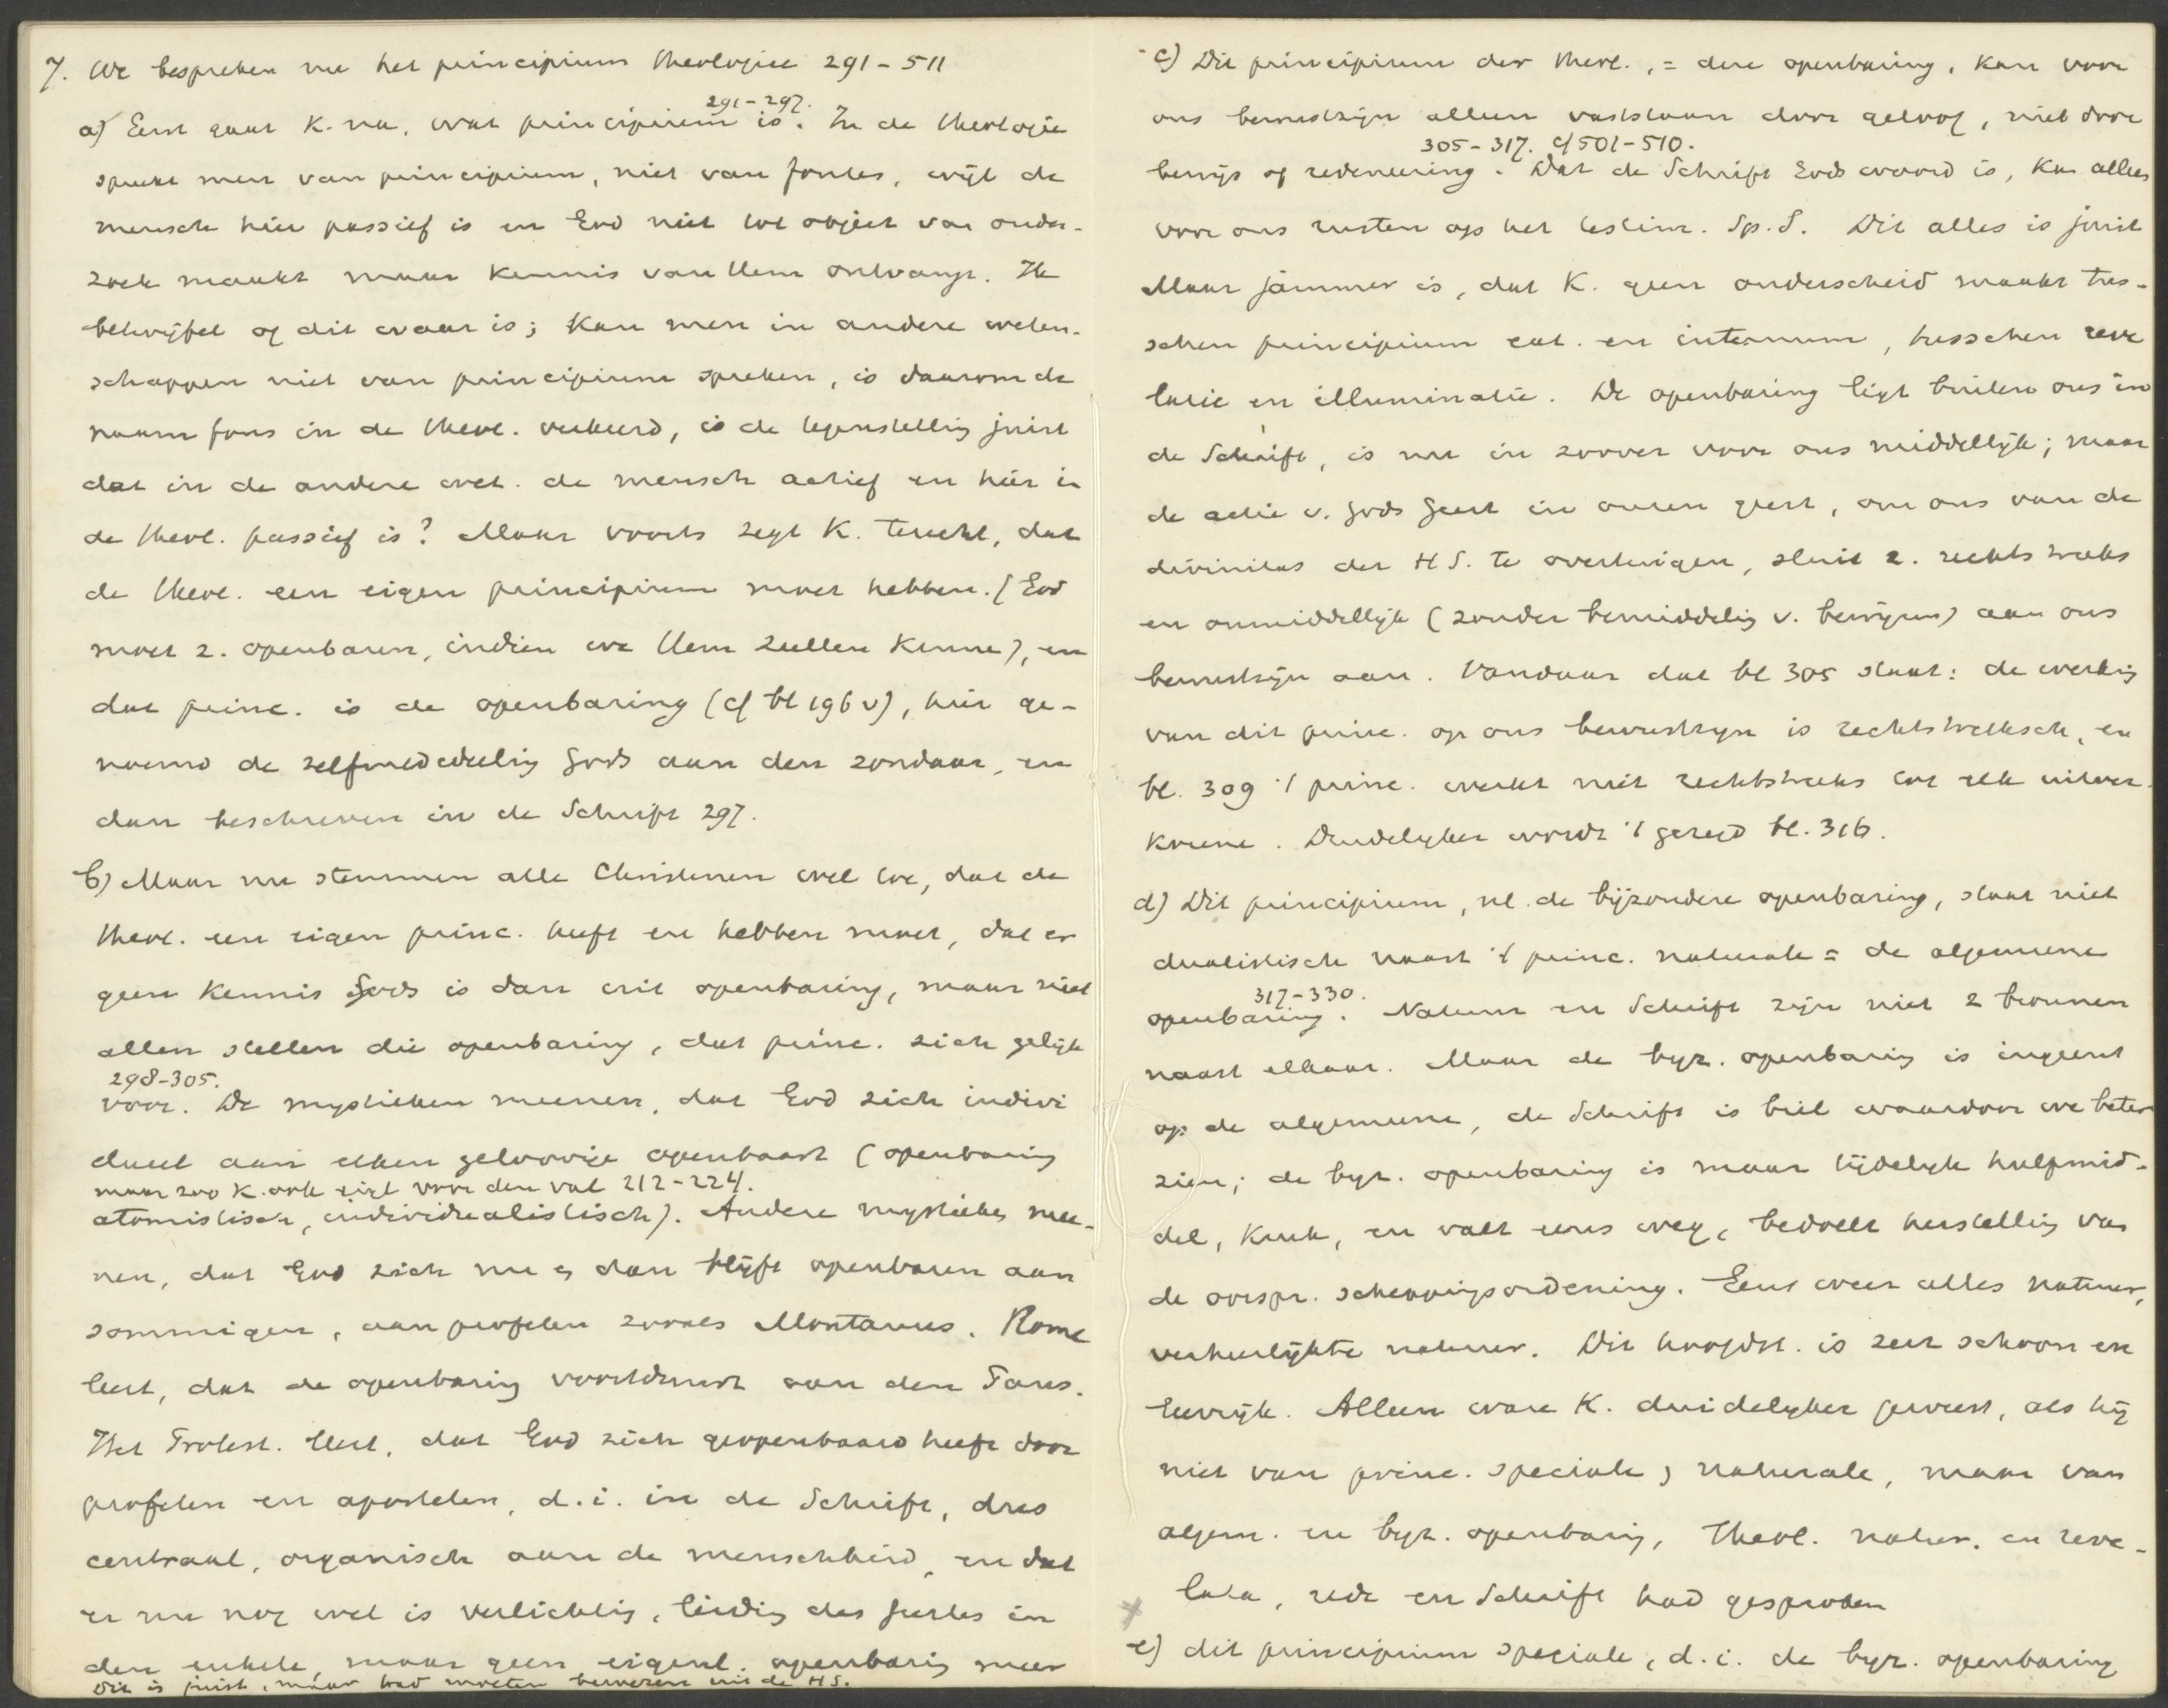 7. We bespreken nu het principium theologiae 291-511
291-297.
a) Eerst gaat K. na, wat principium is. In de theologie
spreekt men van principium, niet van fontes, wijl de
mensch hier passief is en God niet tot object van onder-
zoek maakt maar kennis van Hem ontvangt. Ik
betwijfel of dit waar is; kan men in andere weten-
schappen niet van principium spreken, is daarom de
naam fons in de theol. verkeerd, is de tegenstelling juist
dat in de andere wet. de mensch actief en hier in
de theol. passief is? Maar voorts zegt K. terecht, dat
de theol. een eigen principium moet hebben. (God
moet z. openbaren, indien we Hem zullen kennen), en
dat princ. is de openbaring (cf bl 196 v), hier ge-
noemd de zelfmededeeling Gods aan den zondaar, en
dan beschreven in de Schrift 297.
b) Maar nu stemmen alle Christenen wel toe, dat de
theol. een eigen princ. heeft en hebben moet, dat er
geen kennis Gods is dan uit openbaring, maar niet
allen stellen die openbaring, dat princ. zich gelijk
298-305.
voor. De mystieken meenen, dat God zich indivi
dueel aan elken geloovige openbaart (openbaring
maar zoo K. ook zegt voor den val 212-224.
atomistisch, individualistisch). Andere mystieken mee-
nen, dat God zich nu en dan blijft openbaren aan
sommigen, aan profeten zooals Montanus. Rome
leert, dat de openbaring voortduurt aan den Paus.
Het Protest. leert, dat God zich geopenbaard heeft door
profeten en apostelen, d.i. in de Schrift, dus
centraal, organisch aan de menschheid, en dat
er nu nog wel is verlichting, leiding des Geestes in
den enkele, maar geen eigenl. openbaring meer
Dit is juist, maar had moeten bewezen uit de HS.
c) Dit principium der theol., = deze openbaring, kan voor
ons bewustzijn alleen vaststaan door geloof, niet door
305-317. cf 501-510.
bewijs of redeneering. Dat de Schrift Gods woord is, kan alleen
voor ons rusten op het testim. Sp. S. Dit alles is juist
Maar jammer is, dat K. geen onderscheid maakt tus-
schen principium ext. en internum, tusschen reve
latie en illuminatie. De openbaring ligt buiten ons in
de Schrift, is nu in zoover voor ons middellijk; maar
de actie v. Gods Geest in onzen geest, om ons van de
divinitas der HS. te overtuigen, sluit z. rechtstreeks
en onmiddellijk (zonder bemiddeling v. bewijzen) aan ons
bewustzijn aan. Vandaar dat bl 305 staat: de werking
van dit princ. op ons bewustzijn is rechtstreeksch, en
bl. 309 't princ. werkt niet rechtstreeks tot elk uitver-
korene. Duidelijker wordt 't gezegd bl. 316.
d) Dit principium, nl. de bijzondere openbaring, staat niet
dualistisch naast 't princ. naturale = de algemeene
317-330.
openbaring. Natuur en Schrift zijn niet 2 bronnen
naast elkaar. Maar de byz. openbaring is ingeënt
op de algemeene, de Schrift is bril waardoor we beter
zien; de byz. openbaring is maar tijdelijk hulpmid-
del, kruk, en valt eens weg, bedoelt herstelling van
de oorspr. scheppingsordening. Eens weer alles natuur,
verheerlijkte natuur. Dit hoofdst. is zeer schoon en
leerrijk. Alleen ware K. duidelijker geweest, als hij
niet van princ. speciale en naturale, maar van
algem. en byz. openbaring, theol. natur. en reve-
lata, rede en Schrift had gesproken
e) dit principium speciale, d.i. de byz. openbaring